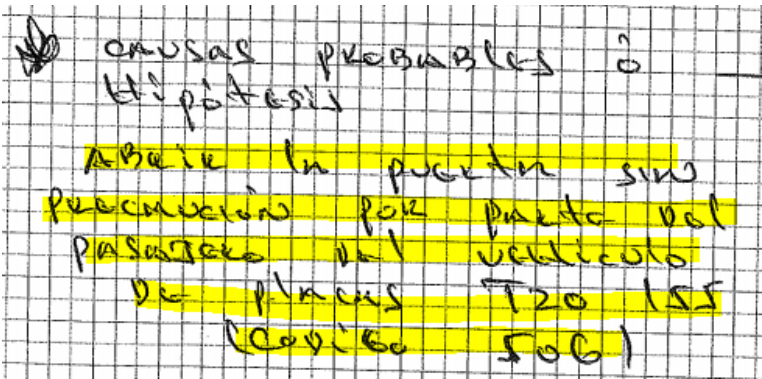 causas probables ó
Hipótesis
Abrir la puerta sin
precaución por parte del
pasajero del vehiculo
de placas T20 155
(Codigo 506)